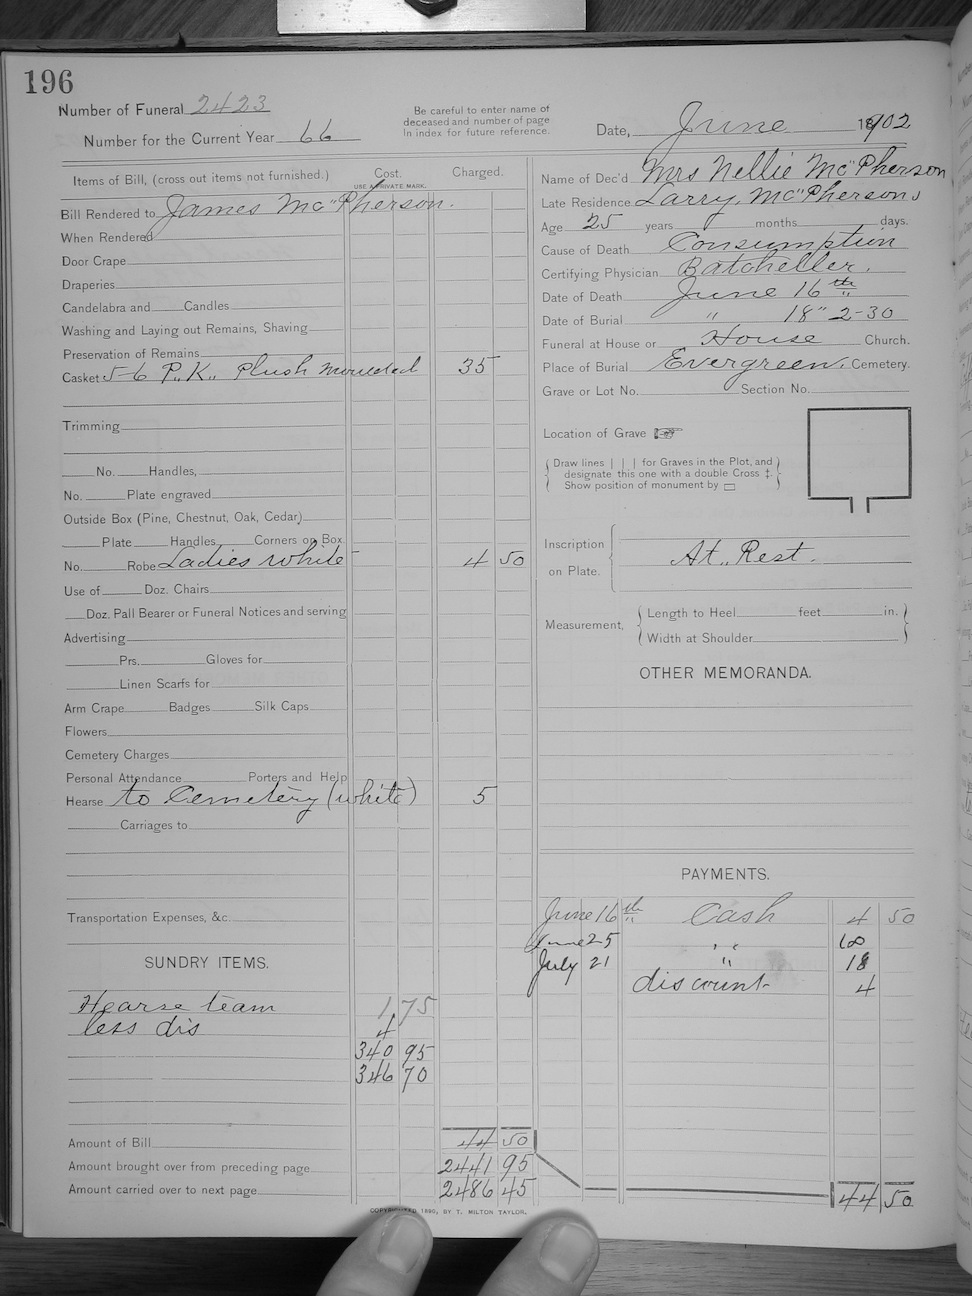 196
Number of Funeral 2423
Number for the Current Year 66
Be careful to enter name of
deceased and number of page
In index for future reference.
Date, June 1902
Items of Bill, (cross out items not furnished.)
Cost.
USE A PRIVATE MARK.
Charged.
Bill Rendered to James Mc"Pherson.
When Rendered
Door Crape
Draperies
Candelabra and Candles
Washing and Laying out Remains, Shaving
Preservation of Remains
Casket 5-6 P.K. Plush moulded 35
Trimming
No. Handles,
No. Plate engraved
Outside Box (Pine, Chestnut, Oak, Cedar)
Plate Handles Corners on Box
No. Robe Ladies white 4 50
Use of Doz. Chairs
Doz. Pall Bearer or Funeral Notices and serving
Advertising
Prs. Gloves for
Linen Scarfs for
Arm Crape Badges Silk Caps
Flowers
Cemetery Charges
Personal Attendance Porters and Help
Hearse to Cemetery (white) 5
Carriages to
Transportation Expenses, &c.
SUNDRY ITEMS.
Hearse team 1 75
less dis 4
340 95
346 70
Amount of Bill 44 50
Amount brought over from preceding page 2441 95
Amount carried over to next page 2486 45
Name of Dec'd Mrs Nellie Mc"Pherson
Late Residence Larry. Mc"Phersons
Age 25 years months days.
Cause of Death Consumption
Certifying Physician Batcheller.
Date of Death June 16th
Date of Burial " 18" 2-30
Funeral at House or House Church.
Place of Burial Evergreen. Cemetery.
Grave or Lot No. Section No.
Location of Grave ☞
Draw lines | | | for Graves in the Plot, and
designate this one with a double Cross ‡.
Show position of monument by ▭
Inscription
on Plate. At Rest.
Measurement,
Length to Heel feet in.
Width at Shoulder
OTHER MEMORANDA.
PAYMENTS.
June 16th Cash 4 50
June 25 " 18
July 21 " 18
discount 4
44 50
COPYRIGHTED 1880, BY T. MILTON TAYLOR.